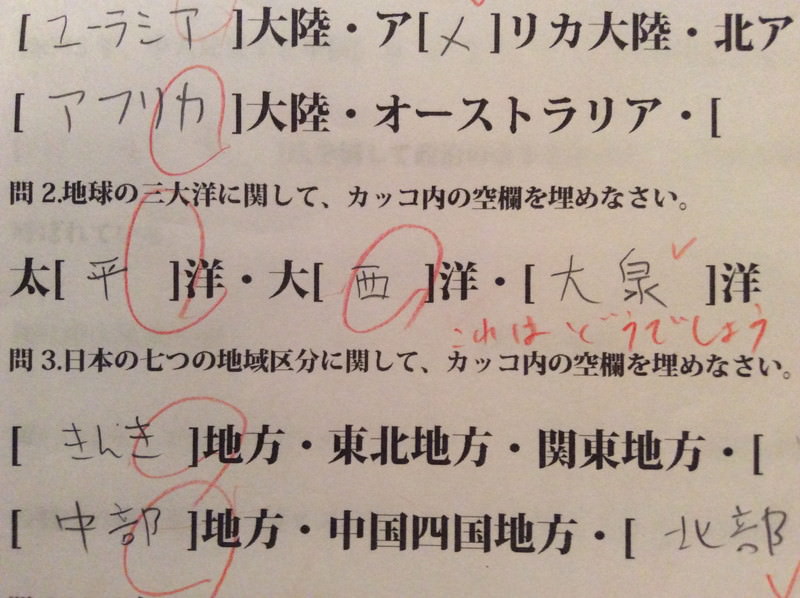 [ユーラシア]大陸・ア[メ]リカ大陸・北ア
[アフリカ]大陸・オーストラリア・[
問2.地球の三大洋に関して、カッコ内の空欄を埋めなさい。
太[平]洋・大[西]洋・[大泉]洋
これはどうでしょう
問3.日本の七つの地域区分に関して、カッコ内の空欄を埋めなさい。
[きんき]地方・東北地方・関東地方・[
[中部]地方・中国四国地方・[北部